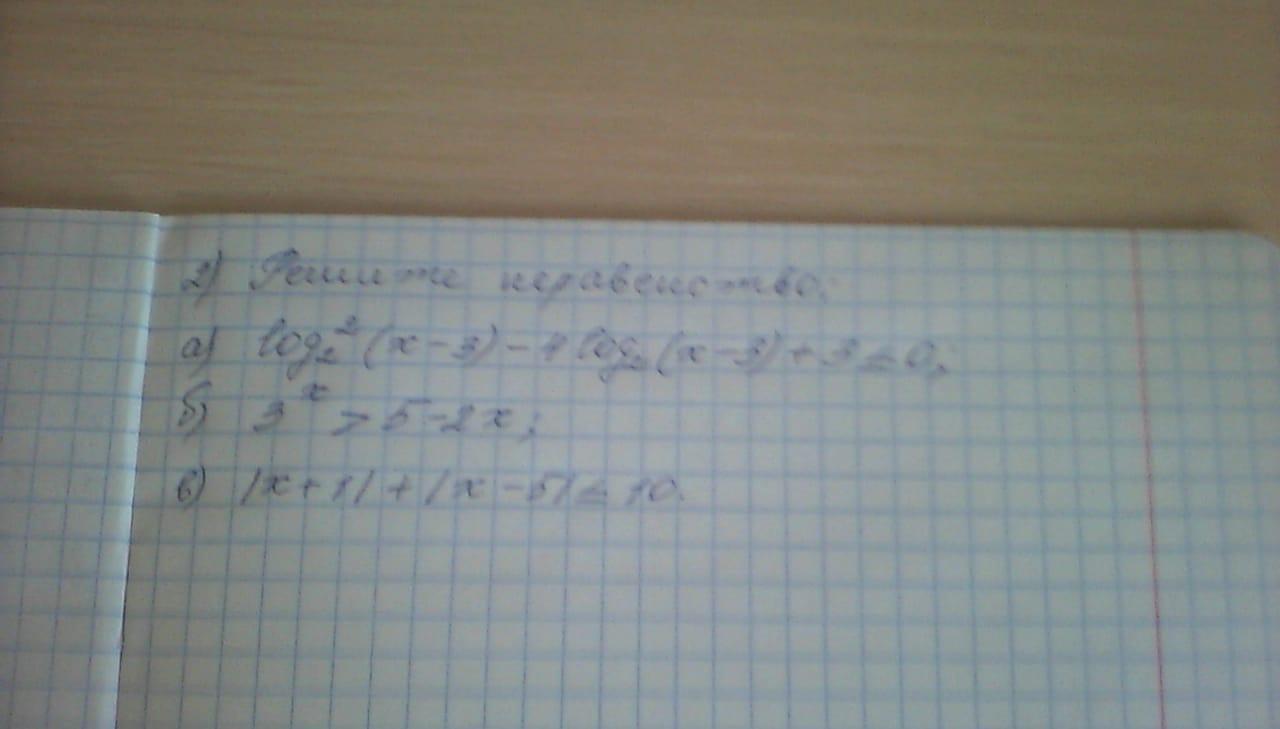 2) Решите неравенство:
а) log₂²(x-3)-4log₂(x-3)+3≤0;
б) 3ˣ > 5-2x;
в) |x+1|+|x-5|≤10.